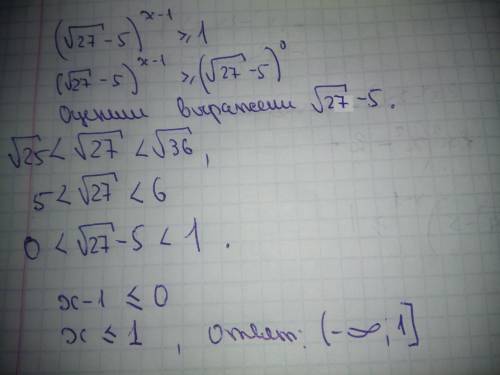 (√27 - 5)^(x-1) ≥ 1
(√27 - 5)^(x-1) ≥ (√27 - 5)^0
Оценим выражении √27 - 5.
√25 < √27 < √36,
5 < √27 < 6
0 < √27 - 5 < 1.
x - 1 ≤ 0
x ≤ 1, ответ: (-∞; 1]